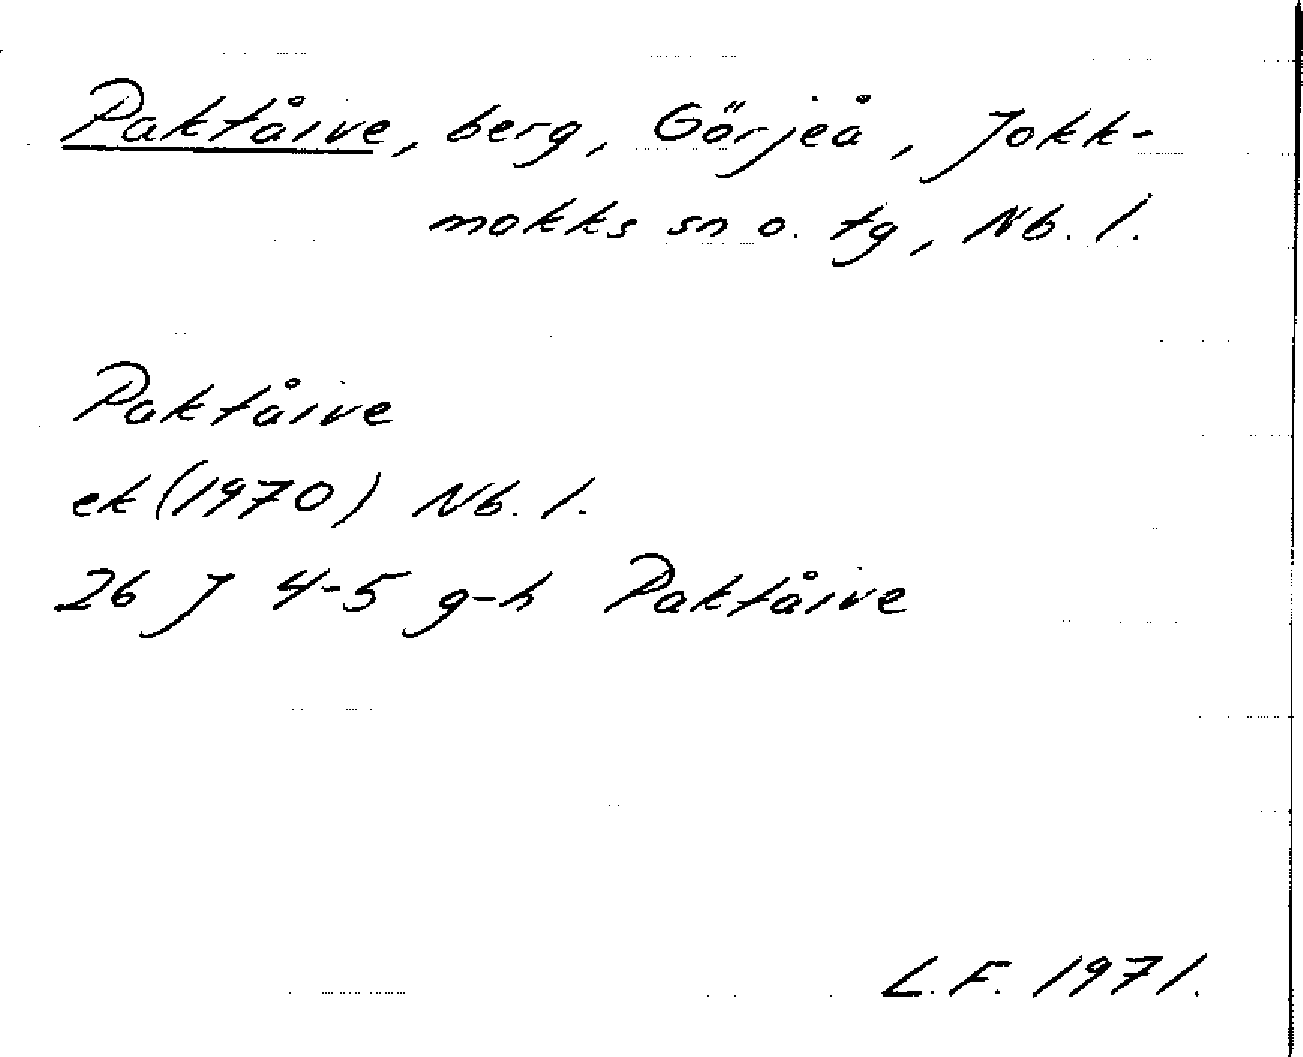 Paktåive, berg, Görjeå, Jokk-
mokks sn o. tg, Nb. l.
Paktåive
ek (1970) Nb. l.
26 J 4-5 g-h Paktåive
L.F. 1971.